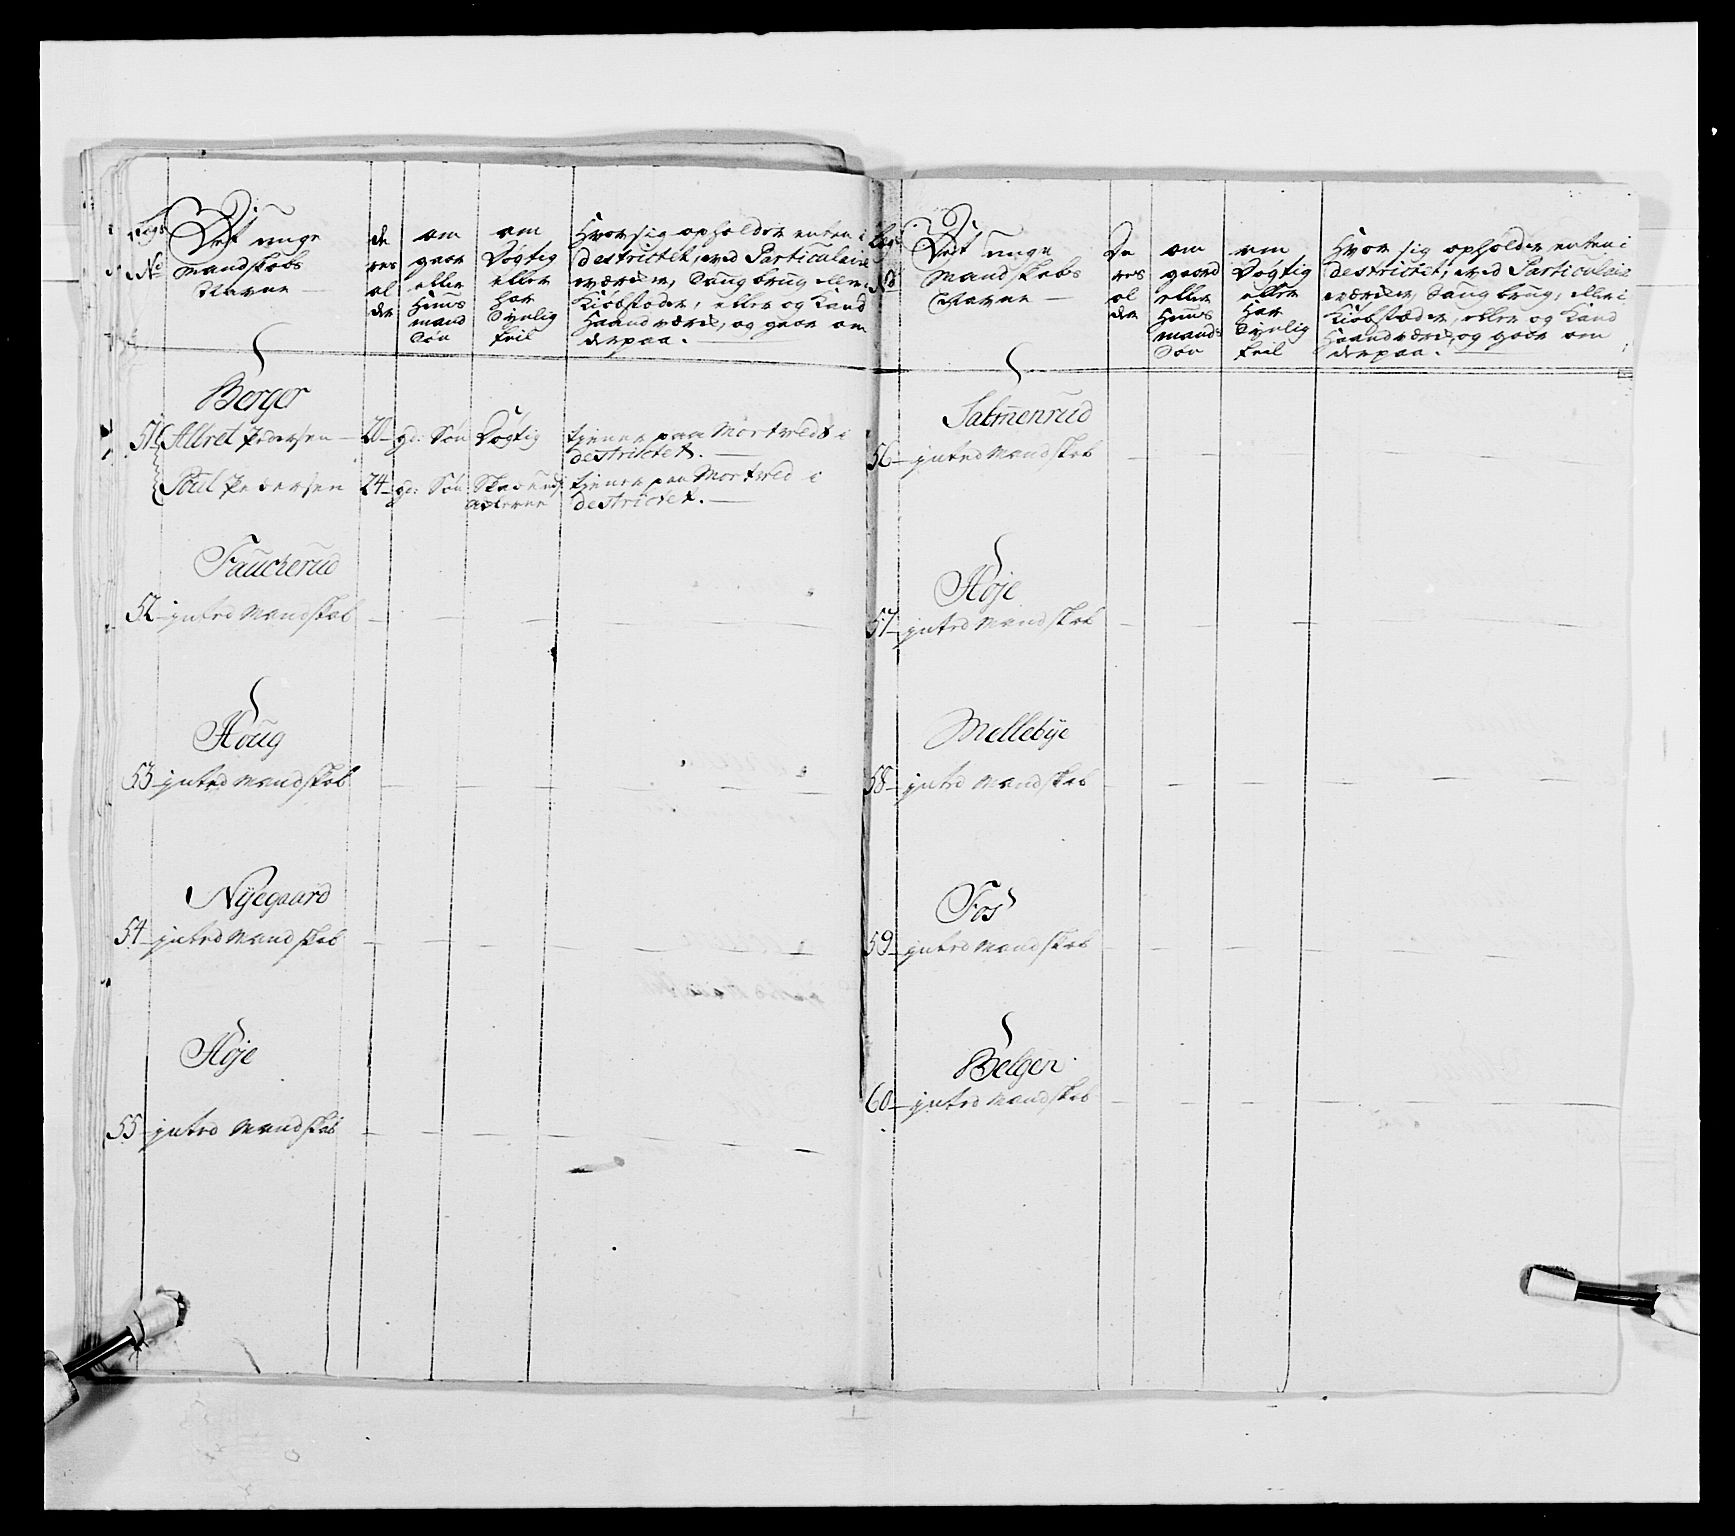 Legs
No
Det unge
Mandskabs
Navne
de
res
al
der
om
gaar
eller
Huus
mand
Søn
om
Døgtig
eller
har
Synlig
feil
Hvor sig opholder enten i
destrictet, ved Particulaire
værcker, Saugbrug eller
Kiøbstæder, eller og kand
Haandværck, og gaar om
derpaa.
Berger
51 Allret Pedersen 20 gd: Søn Døgtig tjener paa Mortvedt i
destrictet.
Poul Pedersen 24 gd: Søn tjener paa Mortved i
destrictet.
Fauckerud
52 inted Mandskab
Houg
53 inted Mandskab
Nÿegaard
54 inted Mandskab
Høje
55 inted Mandskab
Legs
No
Det unge
Mandskabs
Navne
De
res
al
der
om
gaard
eller
Huus
mands
Søn
om
Døgtig
eller
har
Synlig
feil
Hvor sig opholder enten i
destrictet, ved Particulair
værcker, Saug brug, eller i
Kiøbstæder, eller og kand
Haandværck, og gaar om
derpaa.
Salmenrud
56 inted Mandskab
Høje
57 inted Mandskab
Mellebÿe
58 inted Mandskab
Fos
59 inted Mandskab
Belgen
60 inted Mandskab